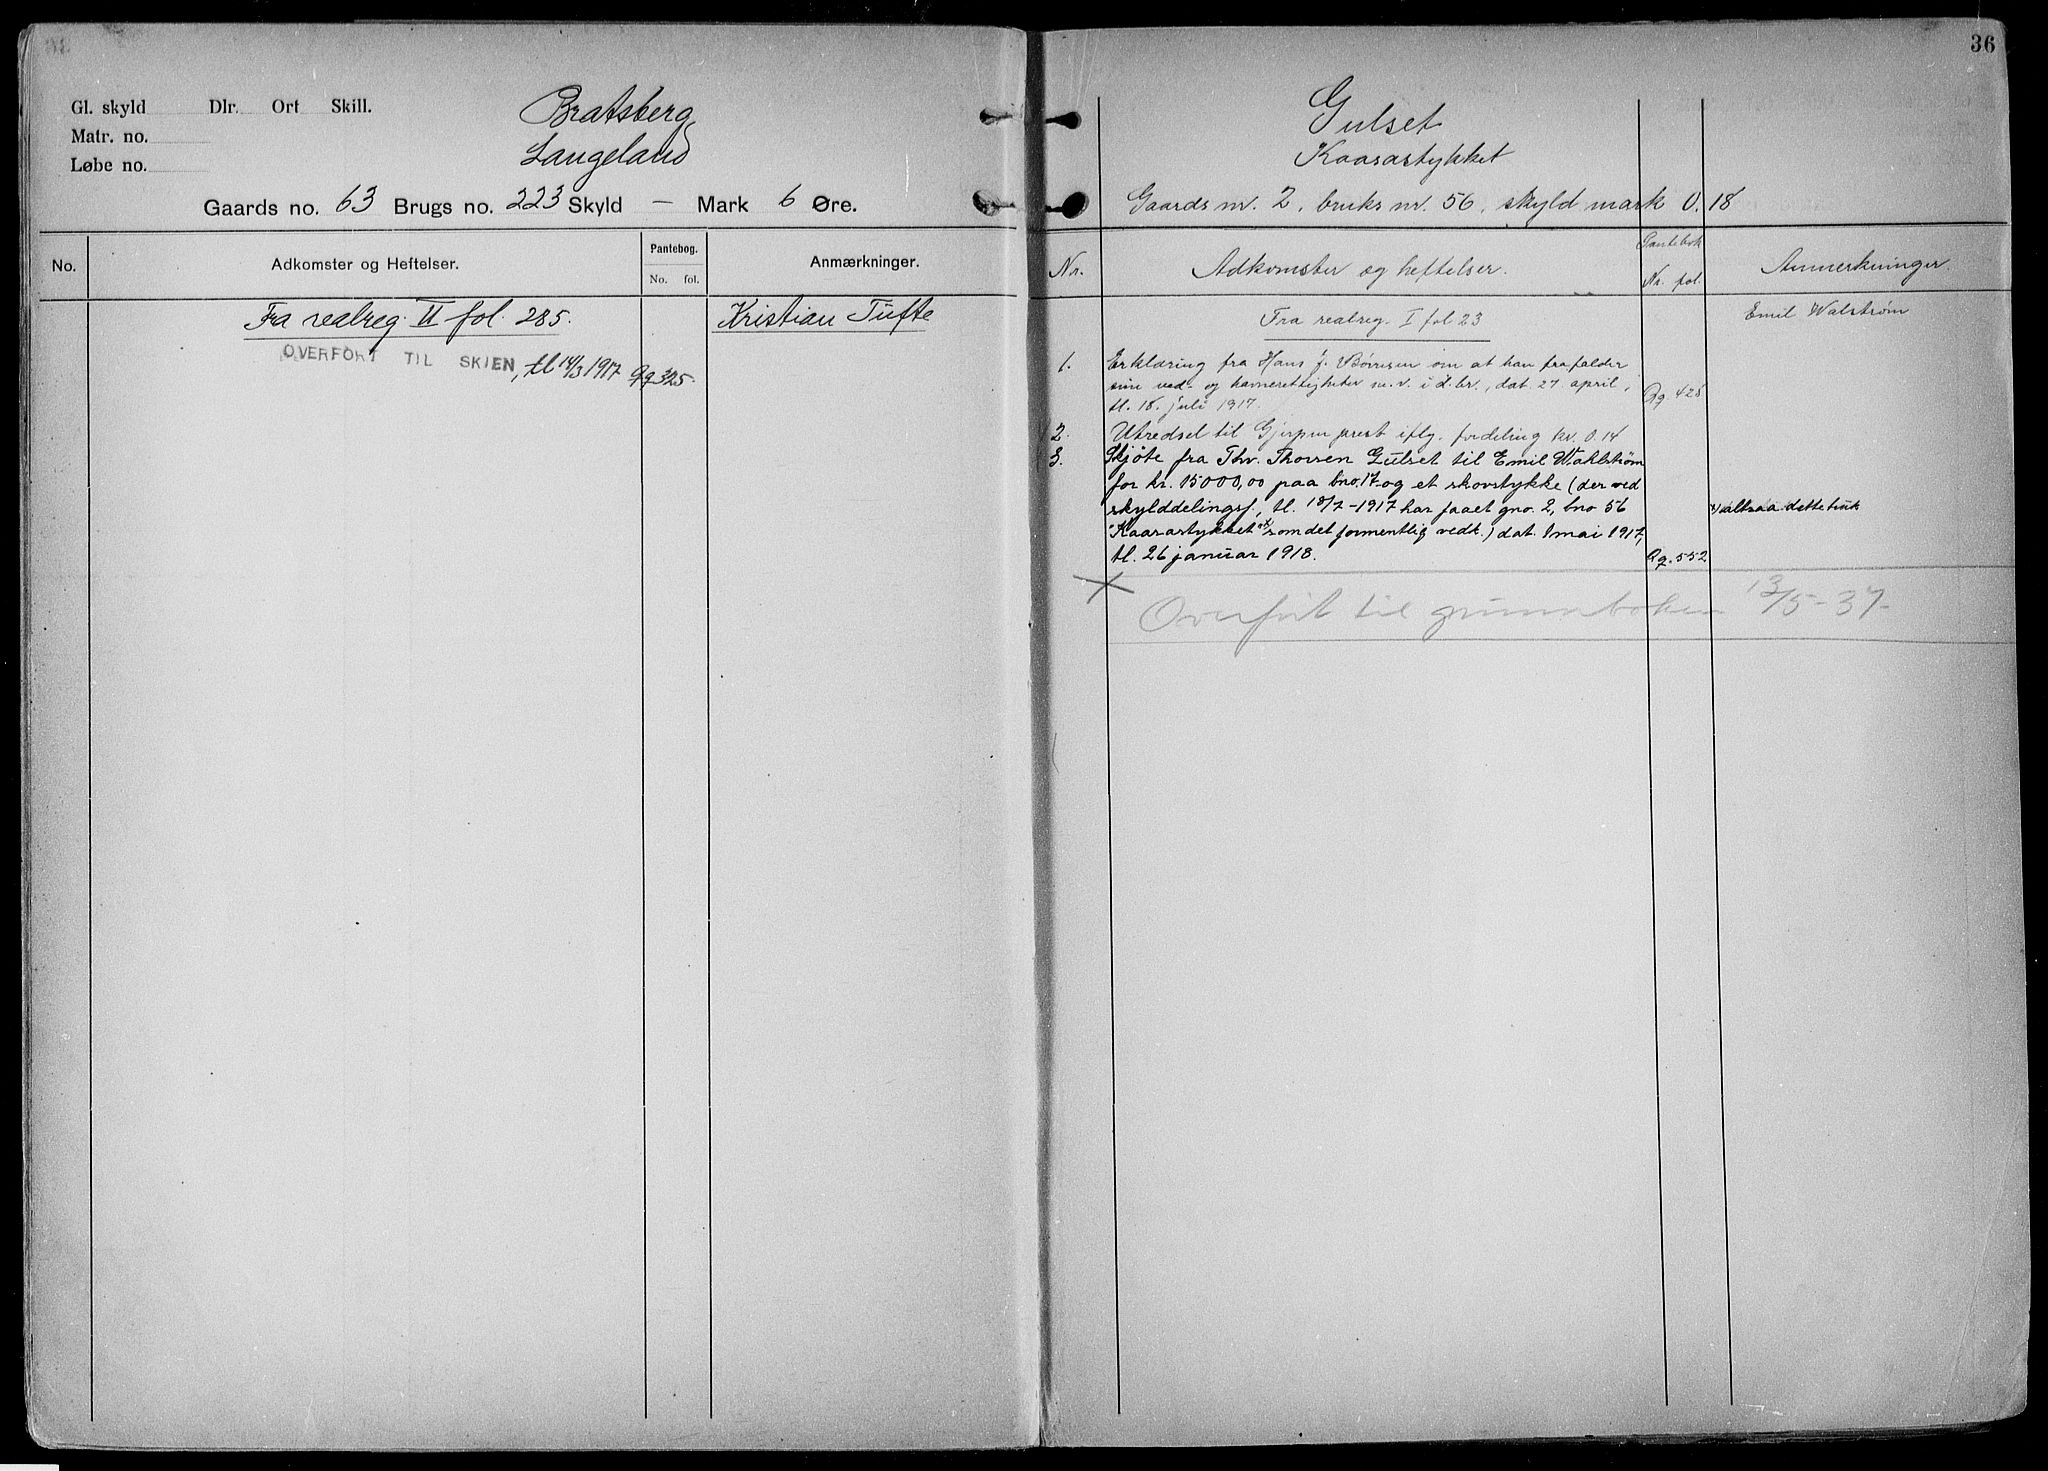 Gl. skyld Dlr. Ort Skill.
Matr. no.
Løbe no.
Bratsberg
Langeland
Gaards no. 63 Brugs no. 223 Skyld — Mark 6 Øre.
No. Adkomster og Heftelser. Pantebog. No. fol. Anmærkninger.
Fra realreg. II fol. 285. Kristian Tufte
OVERFØRT TIL SKIEN, tl 14/3 1917 Qq 325.
36
Gulset
Kaasastykket
Gaards nr. 2, bruks nr. 56, skyld mark 0.18
Nr. Adkomster og heftelser. Pantebok Nr. fol. Anmerkninger.
Fra realreg. I fol 23 Emil Walstrøm
1. Erklæring fra Hans J. Børresen om at han frafalder
sine ved- og havnerettigheter m.v. i d. br., dat. 27 april,
tl. 18. juli 1917. Qq 425
2. Utredsel til Gjerpen prest iflg. fordeling kr. 0.14
3. Skjøte fra Thv. Thorsen Gulset til Emil Wahlstrøm
for kr. 15000,00 paa bno. 17 og et skovstykke (der ved
skylddelingsf., tl. 18/7-1917 har faaet gno. 2, bno 56
"Kaasastykket" x) som det formentlig vedk.) dat. 1 mai 1917,
x) altsaa dette bruk
tl. 26 januar 1918. Qq. 552
Overført til grunnboken 13/5-37-